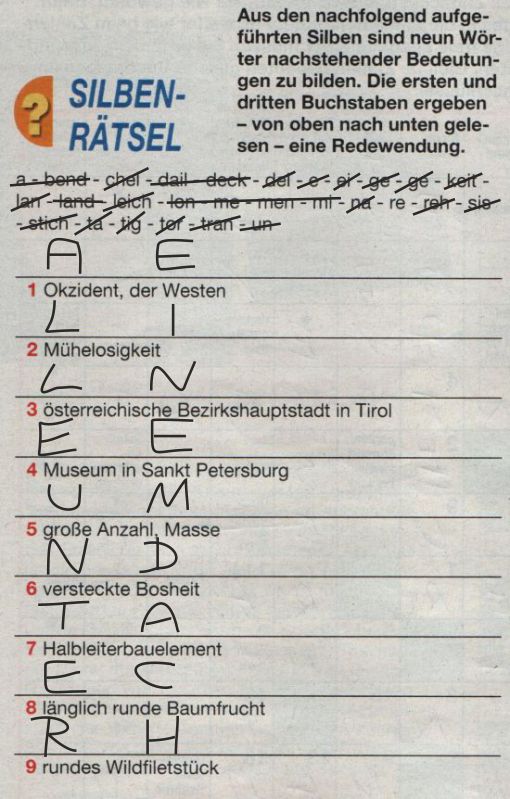 Aus den nachfolgend aufge-
führten Silben sind neun Wör-
ter nachstehender Bedeutun-
gen zu bilden. Die ersten und
dritten Buchstaben ergeben
– von oben nach unten gele-
sen – eine Redewendung.
?
SILBEN-
RÄTSEL
a - bend - chel - dail - deck - del - e - ei - ge - ge - keit -
lan - land - leich - lon - me - men - mi - na - re - reh - sis
- stich - ta - tig - tor - tran - un
A E
1 Okzident, der Westen
L I
2 Mühelosigkeit
L N
3 österreichische Bezirkshauptstadt in Tirol
E E
4 Museum in Sankt Petersburg
U M
5 große Anzahl, Masse
N D
6 versteckte Bosheit
T A
7 Halbleiterbauelement
E C
8 länglich runde Baumfrucht
R H
9 rundes Wildfiletstück